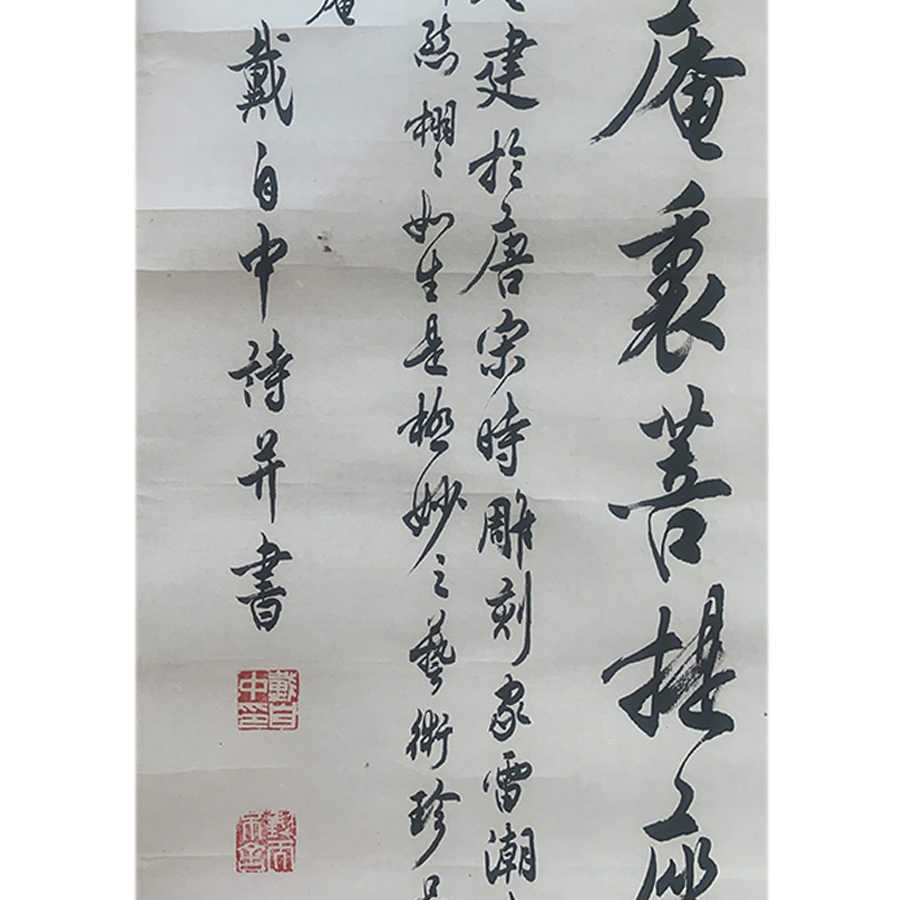 庵裏菩提
建於唐宋時雕刻家雷潮
然栩々如生是極妙之藝術珍
庵
戴自中詩并書
戴自中印